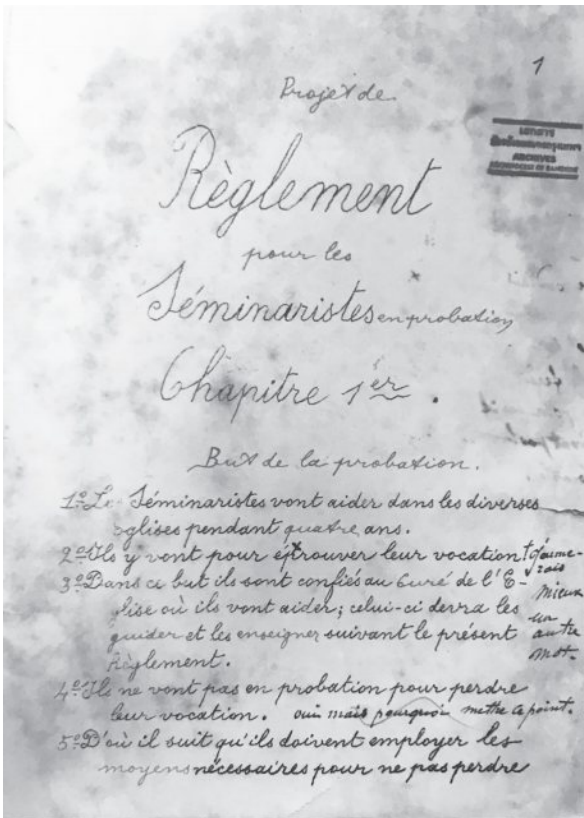 1
Projet de
ARCHIVES
Règlement
pour les
Séminaristes en probation
Chapitre 1er.
But de la probation.
1º Le Séminaristes vont aider dans les diverses
églises pendant quatre ans.
2º Ils y vont pour éprouver leur vocation! + j'aime-
rais
3º Dans ce but ils sont confiés au Curé de l'É-
mieux
glise où ils vont aider; celui-ci devra les
un
guider et les enseigner suivant le présent
autre
Règlement.
mot.
4º Ils ne vont pas en probation pour perdre
leur vocation. oui mais pourquoi mettre ce point.
5º D'où il suit qu'ils doivent employer les
moyens nécessaires pour ne pas perdre